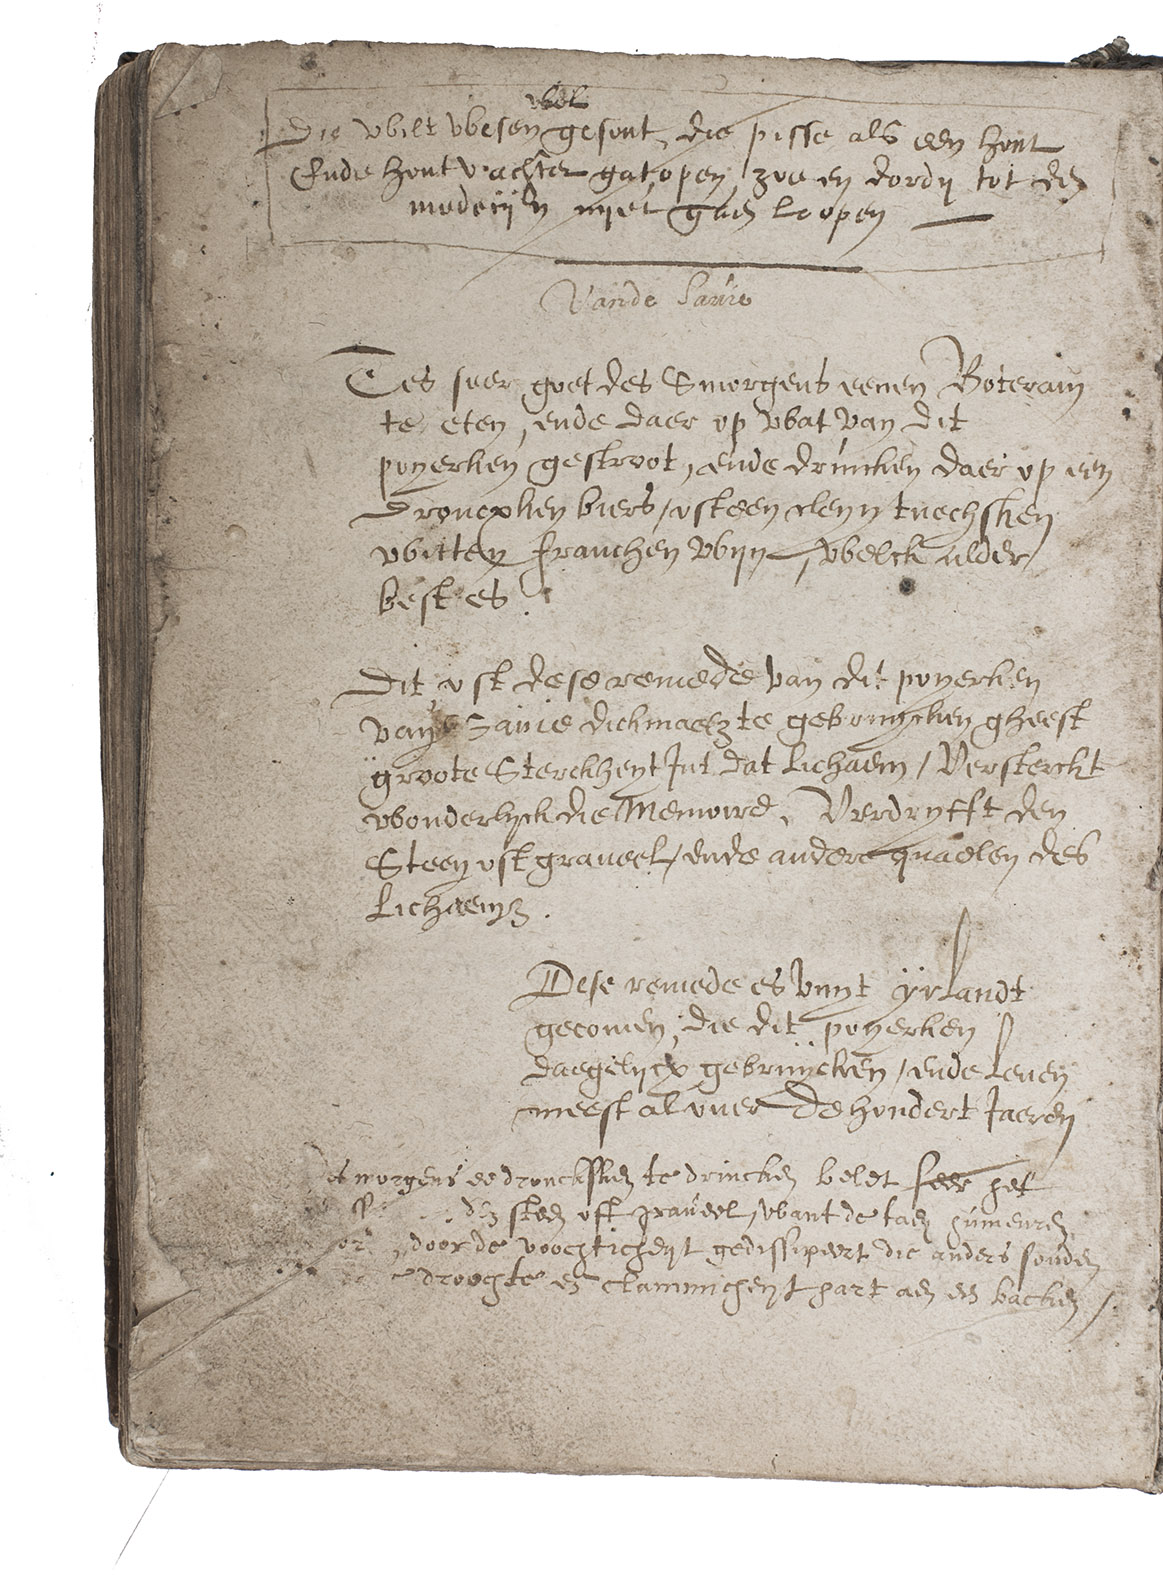 wel
Die wilt wesen gesont, die pisse als een hont
Ende hout v achter gat open, zoe en dordy tot den
medecijn nyet gaen loopen
Vande Savie
Tes seer goet des Smorgens eenen Boteram
te eten, ende daer op wat van dit
poyerken gestroot, ende drincken daer op een
Droncxken biers / oft een cleyn tuechsken
witten franchen wijn, welck alder
best es.
Dit oft dese remede van dit poyerken
vande Savie dickmaelz te gebruycken gheeft
groote Sterckheyt Int dat Lichaem / Versterckt
wonderlyck die Memoire, Verdryfft den
Steen oft graveel / ende andere quaelen des
Lichaems.
Dese remede es vuyt ÿrlandt
gecomen, die dit poyerken
daegelycx gebruÿcken / ende Leven
meest al over de hondert Jaeren
smorgens ee dronckxken te drincken belet seer het
den steen oft graveel, want de taey humeuren
door de voochticheyt gedissipeert die anders souden
droochte en clammicheyt hart aen een backen /